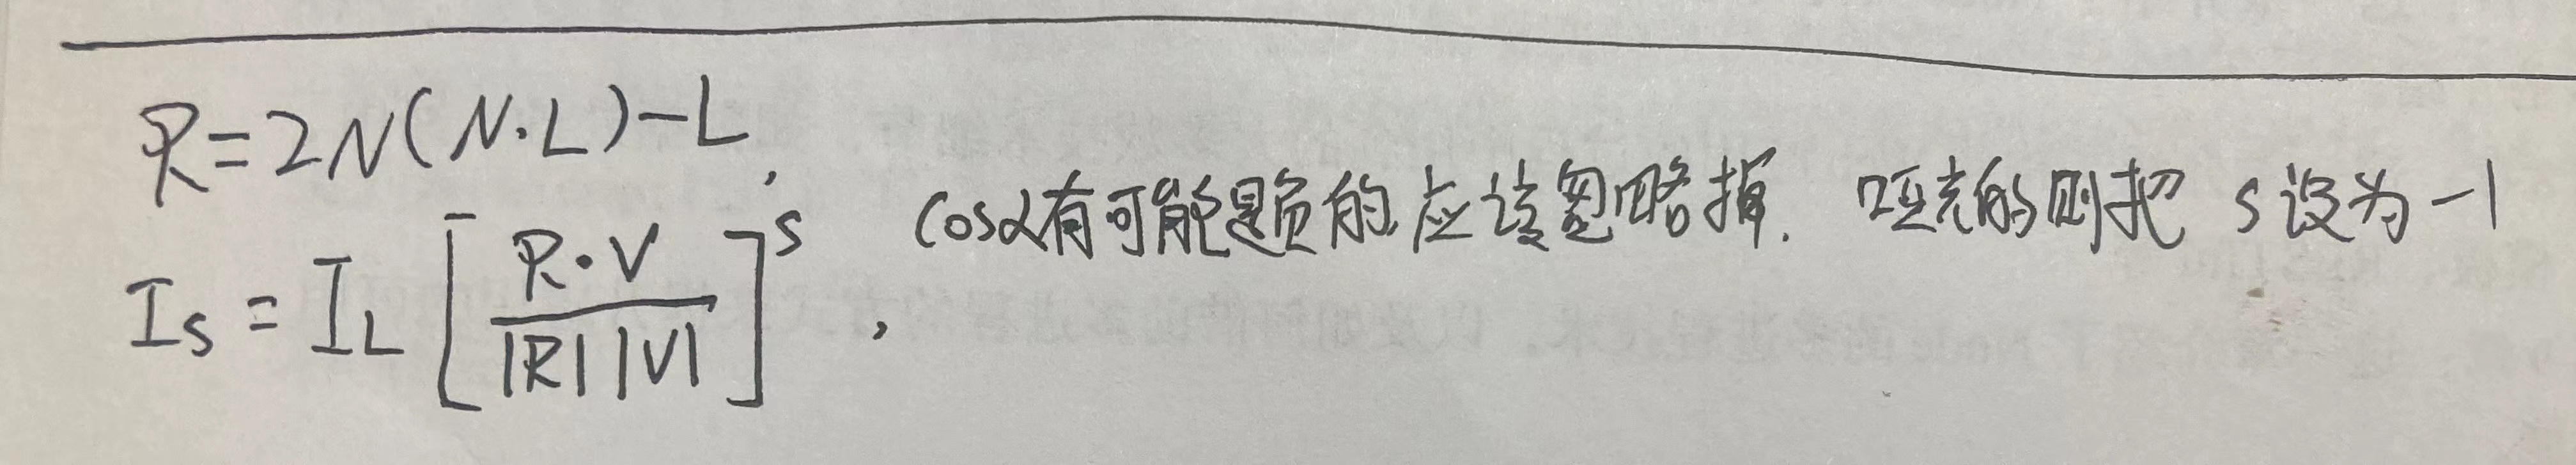 R=2N(N·L)-L,
I_S = I_L [ R·V / |R||V| ]^s , cosα有可能是负的,应该忽略掉. 哑光的则把 s设为-1